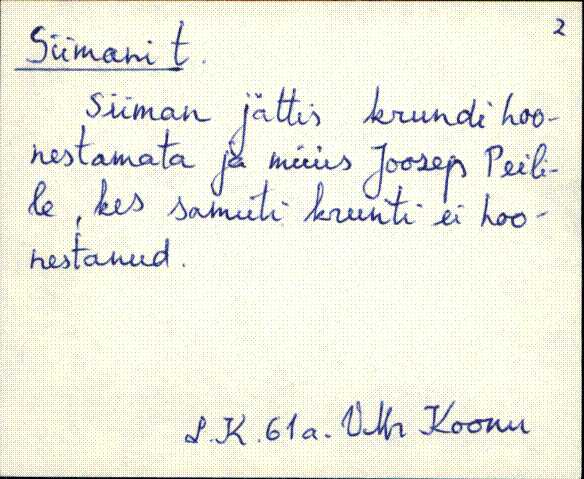 2
Siimani t.
Siiman jättis krundi hoo-
nestamata ja müüs Joosep Peili-
le, kes samuti krunti ei hoo-
nestanud.
L.K. 61 a. V-Mr Koonu